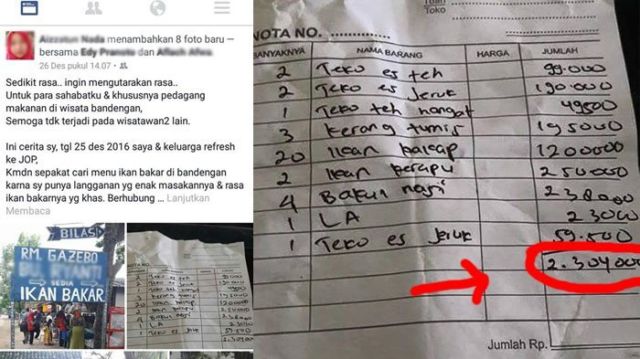 menambahkan 8 foto baru —
bersama Edy Pranoto dan Aflach Afwa
26 Des pukul 14.07 •
Sedikit rasa.. ingin mengutarakan rasa..
Untuk para sahabatku & khususnya pedagang
makanan di wisata bandengan,
Semoga tdk terjadi pada wisatawan2 lain.
Ini cerita sy, tgl 25 des 2016 saya & keluarga refresh
ke JOP,
Kmdn sepakat cari menu ikan bakar di bandengan
karna sy punya langganan yg enak masakannya & rasa
ikan bakarnya yg khas. Berhubung ... Lanjutkan
Membaca
BILAS
RM. GAZEBO
SEDIA
IKAN BAKAR
Toko
NOTA NO.
BANYAKNYA NAMA BARANG HARGA JUMLAH
2 Teko es teh 99.000
2 Teko es Jeruk 190.000
1 Teko teh hangat 49500
3 Kerang tumis 195000
20 Ikan bakap 1200000
2 Ikan kerapu 250000
4 Bakul nasi 238000
1 LA 23000
1 Teko es Jeruk 59.500
2.304000
Jumlah Rp.